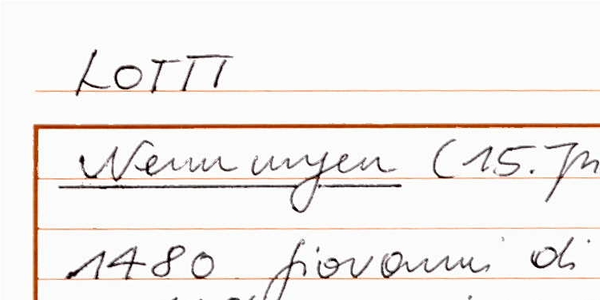 LOTTI
Nennungen (15. Jh
1480 Giovanni di